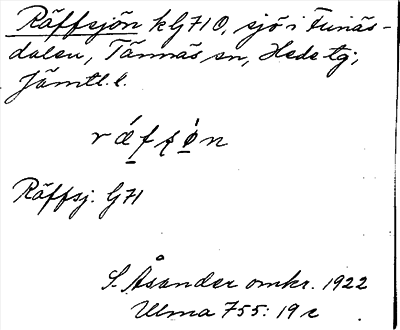 Räffsjön kG710, sjö i Funäs-
dalen, Tännäs sn, Hede tg;
Jämtl. l.
rǽ̱fʂø̱̀n
Räffsj. G71
S. Åsander omkr. 1922
Ulma 755: 19 c